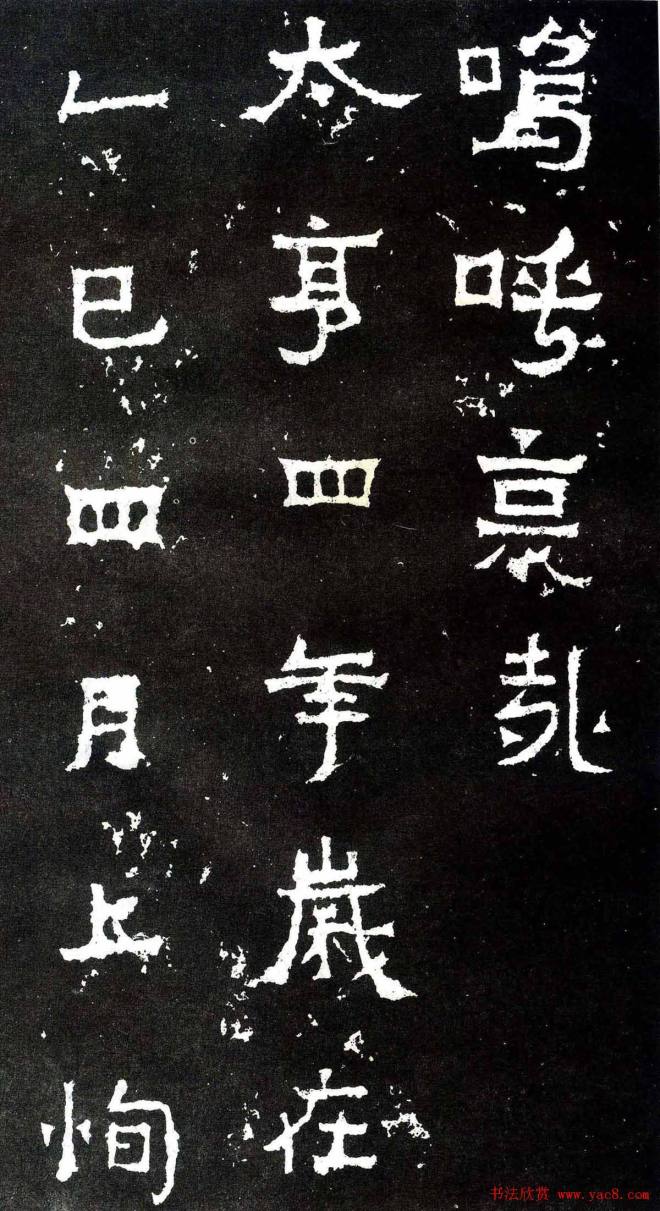 嗚呼哀哉
太亨四年歲在
乙巳四月上恂
书法欣赏 www.yac8.com